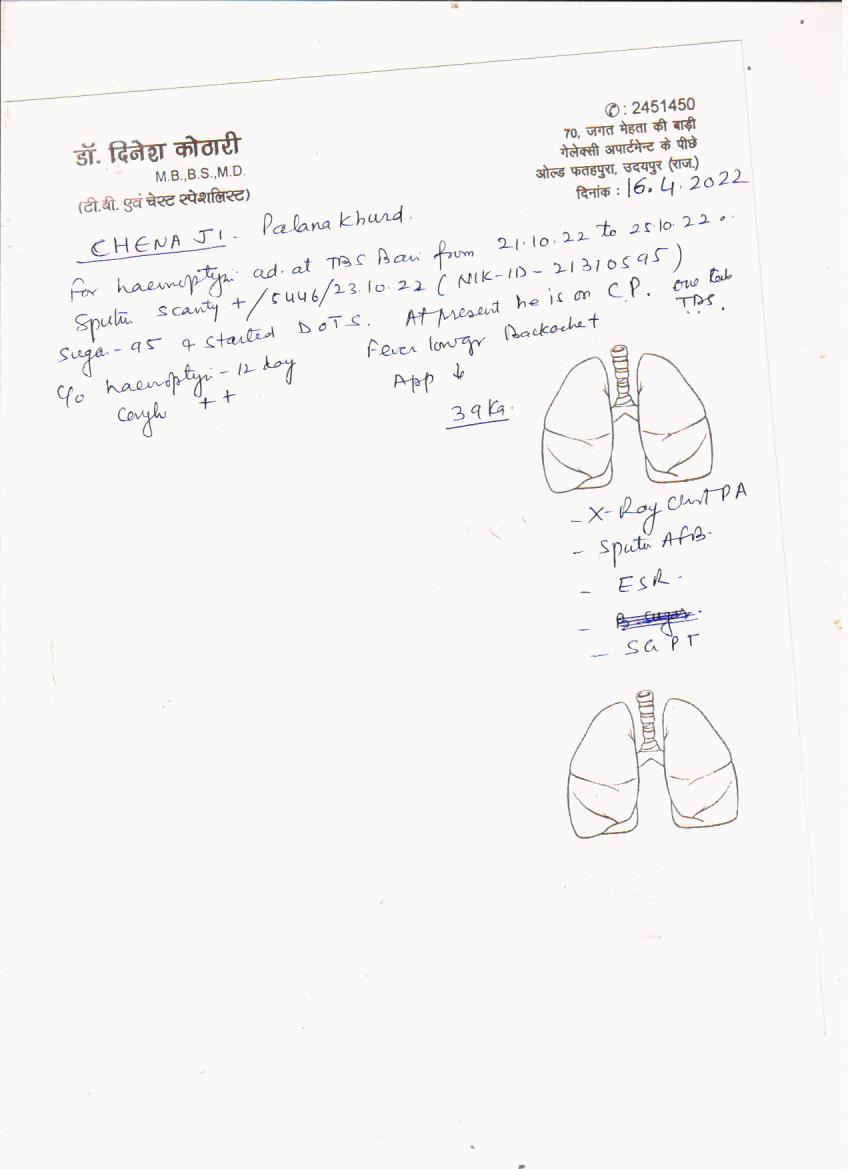 ✆ : 2451450
डॉ. दिनेश कोठारी
M.B.,B.S.,M.D.
(टी.बी. एवं चेस्ट स्पेशलिस्ट)
70, जगत मेहता की बाड़ी
गेलेक्सी अपार्टमेन्ट के पीछे
ओल्ड फतहपुरा, उदयपुर (राज.)
दिनांक : 16.4.2022
CHENA JI. Palana Khurd.
For haemoptysi ad. at TBS Bari from 21.10.22 to 25.10.22.
Sputu scanty + /5446/23.10.22 (NIK-ID-21310595)
Suga - 95 & started DOTS. At present he is on C.P. one tab
TDS.
C/o haemoptysi - 12 day Fever lowgr Backache +
Cough ++ App ↓
39 Kg.
- X-Ray Chest PA
- Sputu AFB.
- ESR.
- SGPT